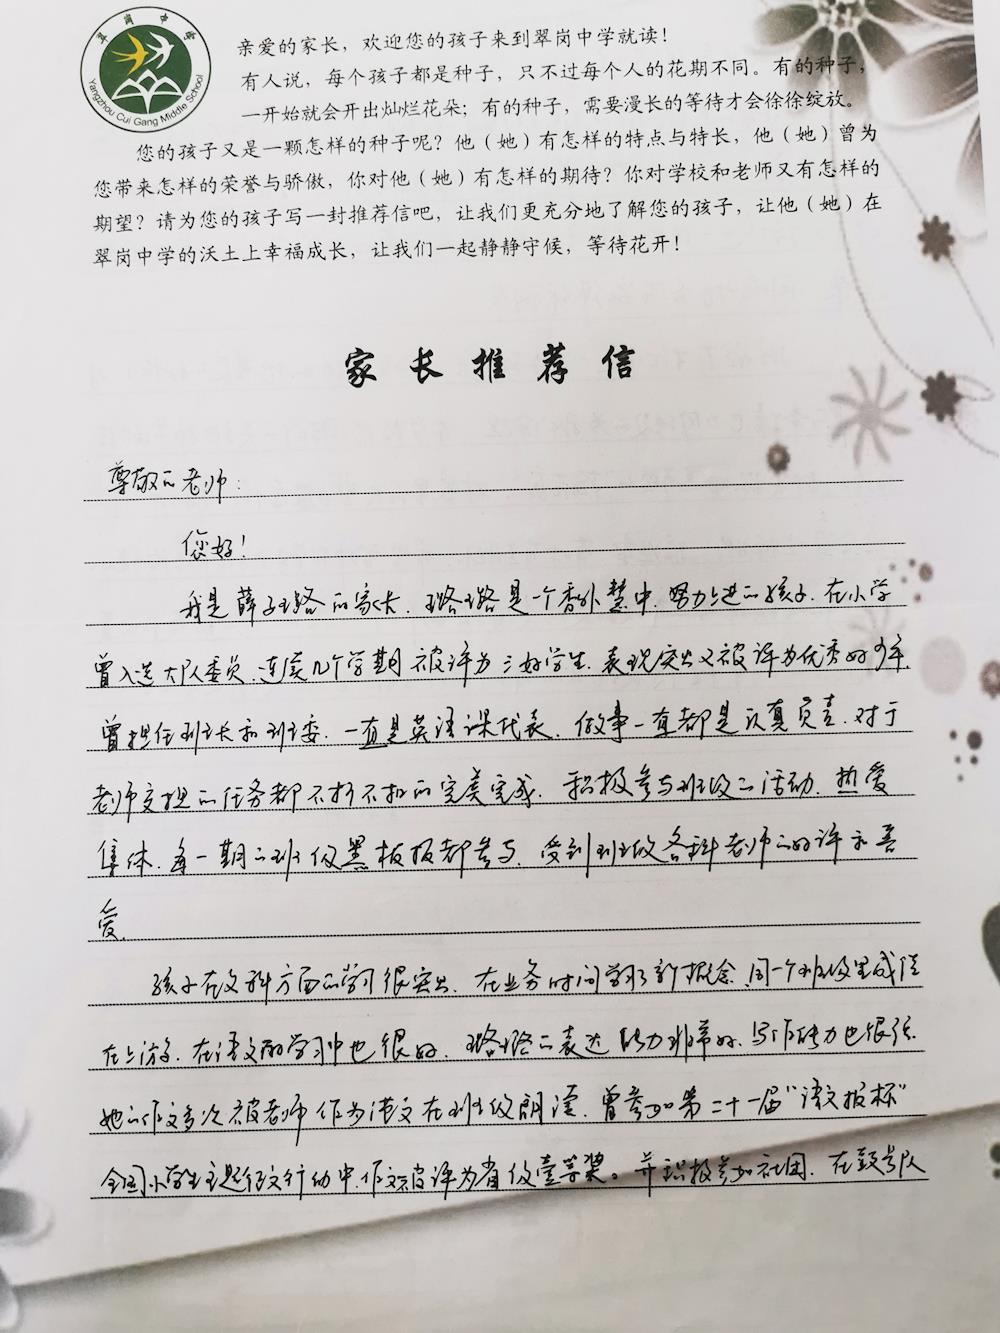 翠岗中学
Yangzhou Cui Gang Middle School
亲爱的家长，欢迎您的孩子来到翠岗中学就读！
有人说，每个孩子都是种子，只不过每个人的花期不同。有的种子，
一开始就会开出灿烂花朵；有的种子，需要漫长的等待才会徐徐绽放。
您的孩子又是一颗怎样的种子呢？他（她）有怎样的特点与特长，他（她）曾为
您带来怎样的荣誉与骄傲，你对他（她）有怎样的期待？你对学校和老师又有怎样的
期望？请为您的孩子写一封推荐信吧，让我们更充分地了解您的孩子，让他（她）在
翠岗中学的沃土上幸福成长，让我们一起静静守候，等待花开！
家长推荐信
尊敬的老师：
您好！
我是薛子璐的家长，璐璐是一个秀外慧中，努力上进的孩子，在小学
曾入选大队委员，连续几个学期被评为三好学生，表现突出又被评为优秀好少年，
曾担任班长和班委，一直是英语课代表，做事一直都是认真负责，对于
老师交担的任务都不折不扣的完美完成，积极参与班级的活动，热爱
集体，每一期的班级黑板报都参与，受到班级各科老师的好评和喜
爱。
孩子在文科方面的学习很突出，在业务时间学习新概念，同一个班级里成绩
在上游，在语文的学习中也很好，璐璐的表达能力非常好，写作能力也很强，
她的作文多次被老师作为范文在班级朗读，曾参加第二十一届“语文报杯”
全国小学生主题征文行动中，作文被评为省级壹等奖。并积极参加社团，在鼓号队